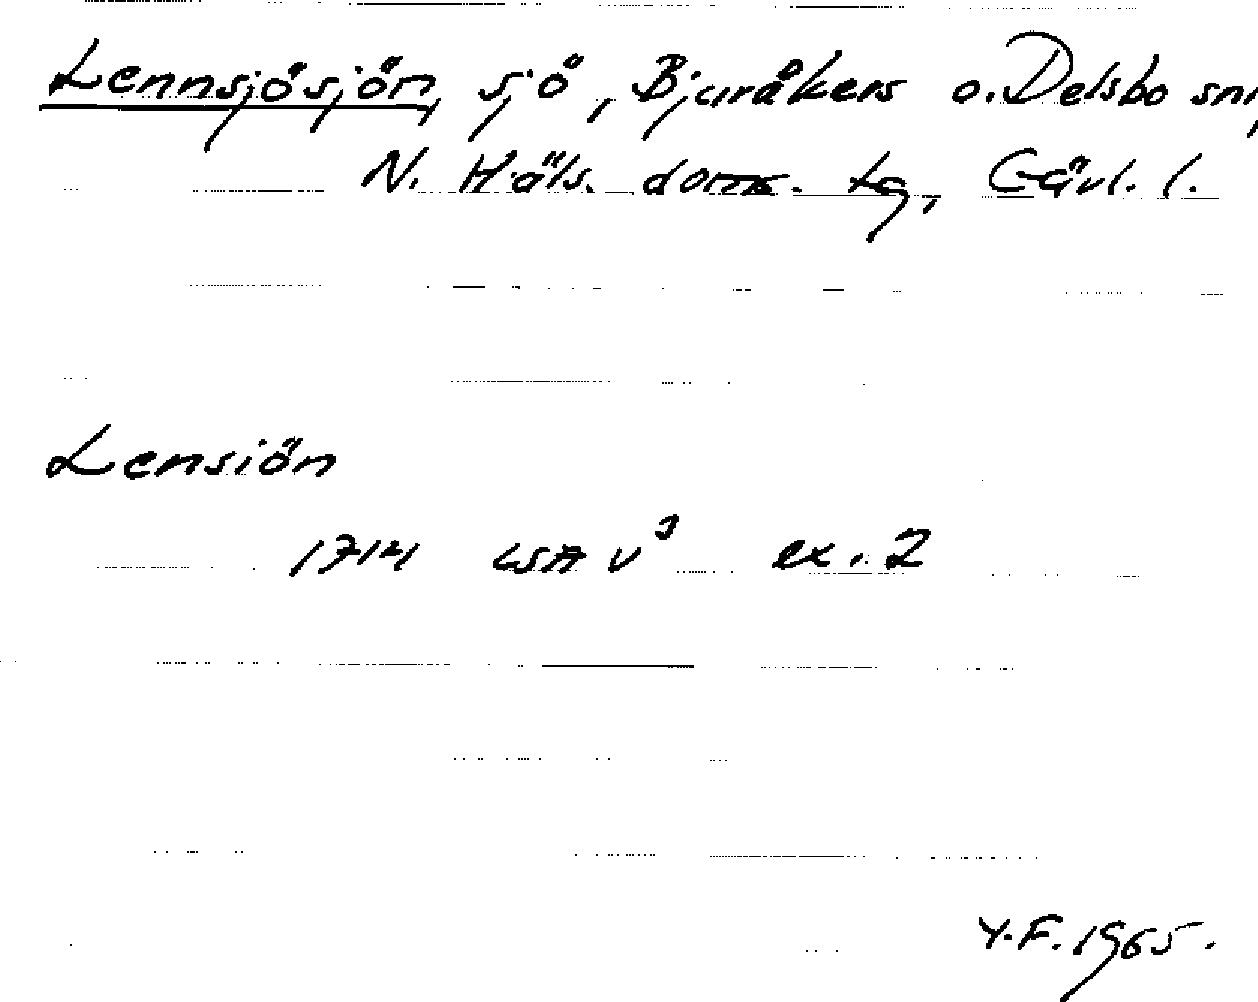 Lennsjösjön, sjö, Bjuråkers o. Delsbo snr,
N. Häls. doms. tg, Gävl. l.
Lensiön
1714 LSA v³ ex. 2
Y.F. 1965.